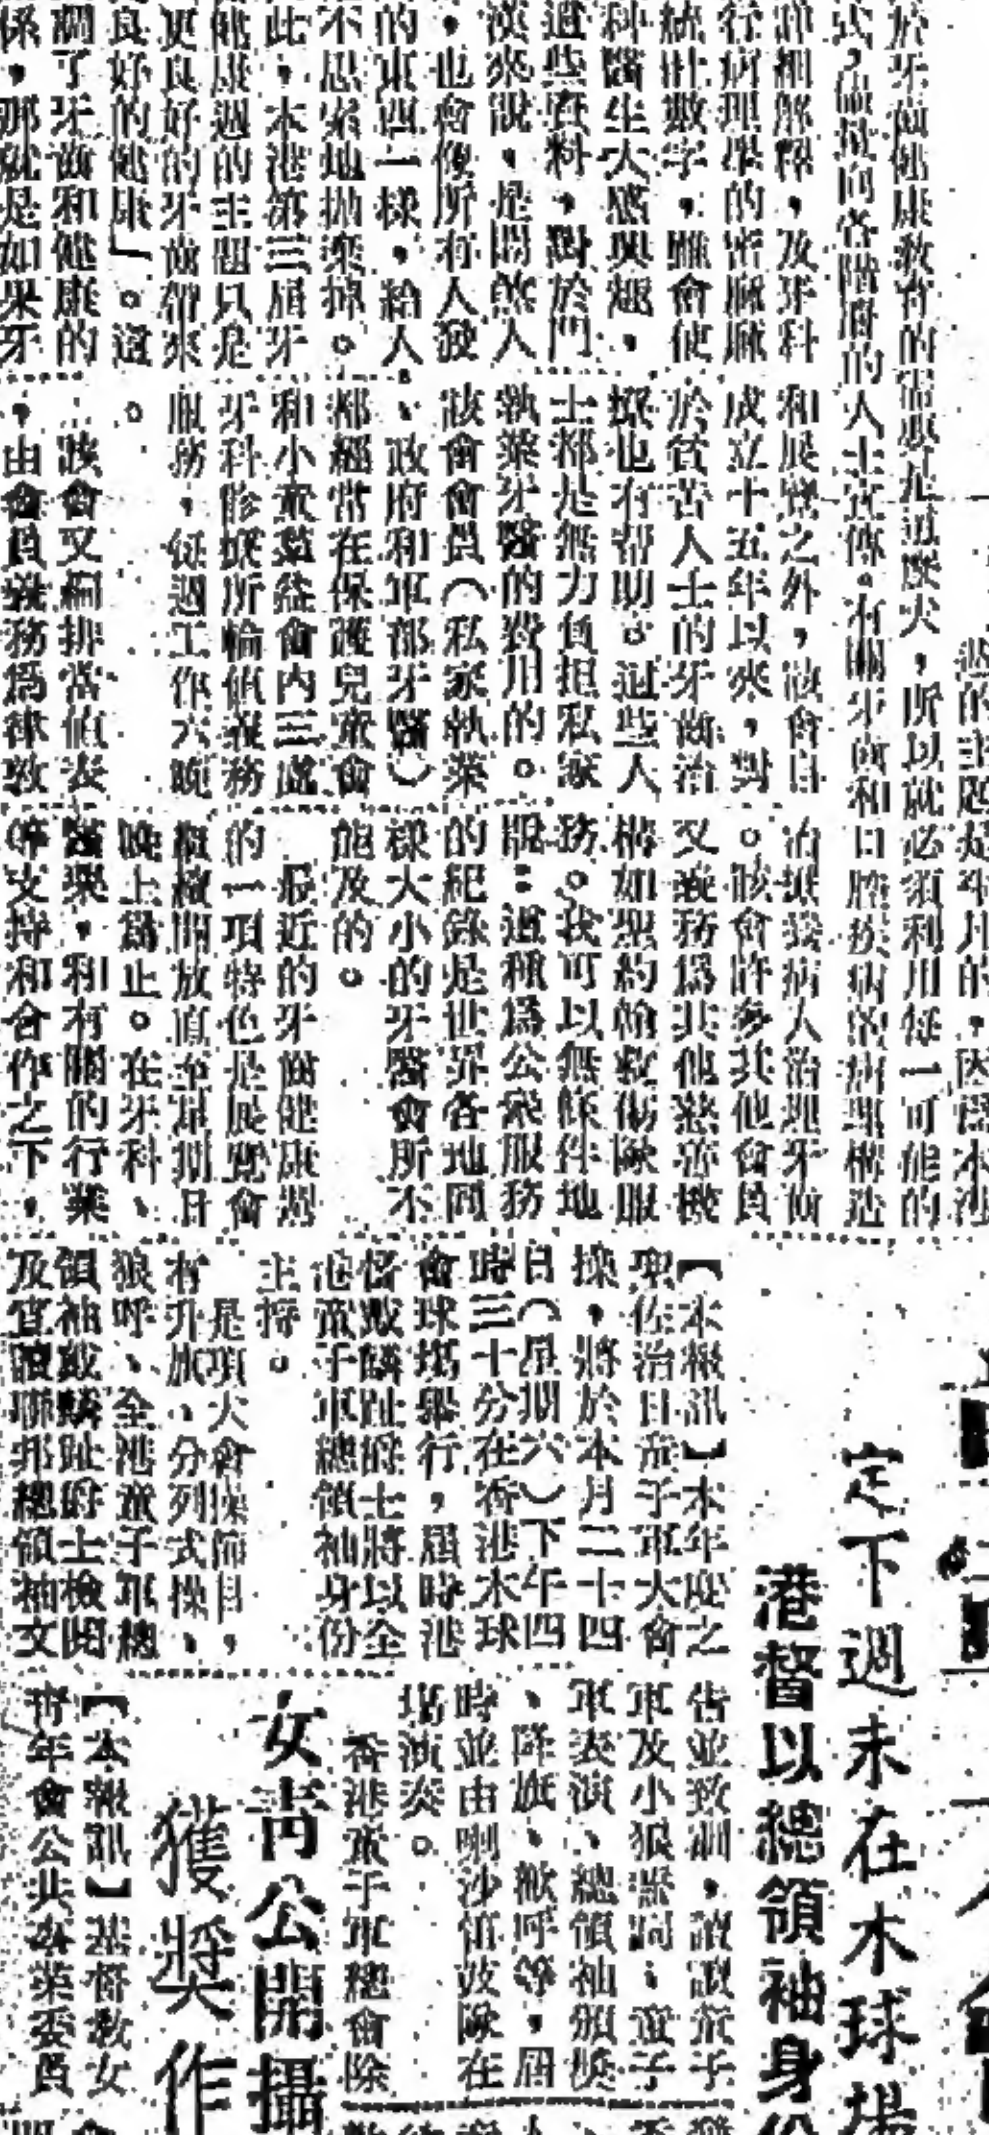 的主題是本月的，因爲本港
於牙齒健康教育的需要是這麼大，所以就必須利用每一可能的
式，儘量向各階層的人士宣傳。有關牙齒和口腔疾病的病理構造
詳細解釋，及牙科
行病理學的密麻麻
統計數字，雖會使
科醫生大感興趣，
這些資料，對於門
漢來說，是悶煞人
，也會像所有人發
的東西一樣，給人
不思索地拋棄掉。
此，本港第三屆牙
健康週的主題只是
更良好的牙齒帶來
良好的健康」。這
調了牙齒和健康的
係，那就是如果牙
和展覽之外，該會自
成立十五年以來，對
於貧苦人士的牙齒治
療也有幫助。這些人
士都是無力負担私家
執業牙醫的費用的。
該會會員（私家執業
、政府和軍部牙醫）
都經常在保護兒童會
和小童羣益會內三處
牙科診療所輪值義務
服務，每週工作六晚
。
該會又編排當值表
，由會員義務爲律敦
治療養病人治理牙齒
。該會許多其他會員
又義務爲其他慈善機
構如聖約翰救傷隊服
務。我可以無條件地
說：這種爲公衆服務
的紀錄是世界各地同
樣大小的牙醫會所不
能及的。
最近的牙齒健康週
的一項特色是展覽會
繼續開放直至星期日
晚上爲止。在牙科、
醫藥，和有關的行業
等支持和合作之下，
定下週末在木球場
港督以總領袖身份
【本報訊】本年度之
聖佐治日童子軍大會
操，將於本月二十四
日（星期六）下午四
時三十分在香港木球
會球塲舉行，屆時港
督戴麟趾爵士將以全
港童子軍總領袖身份
主持。
是項大會操節目，
有升旗、分列式操、
狼呼、全港童子軍總
領袖戴麟趾爵士檢閱
及宣讀聯邦總領袖文
告並致訓，讀童子
軍及小狼誓詞；童子
軍表演、總領袖頒獎
、降旗、歡呼等，屆
時並由喇沙笛鼓隊在
塲演奏。
香港童子軍總會除
女青公開攝
獲獎作
【本報訊】基督教女
青年會公共事業委員